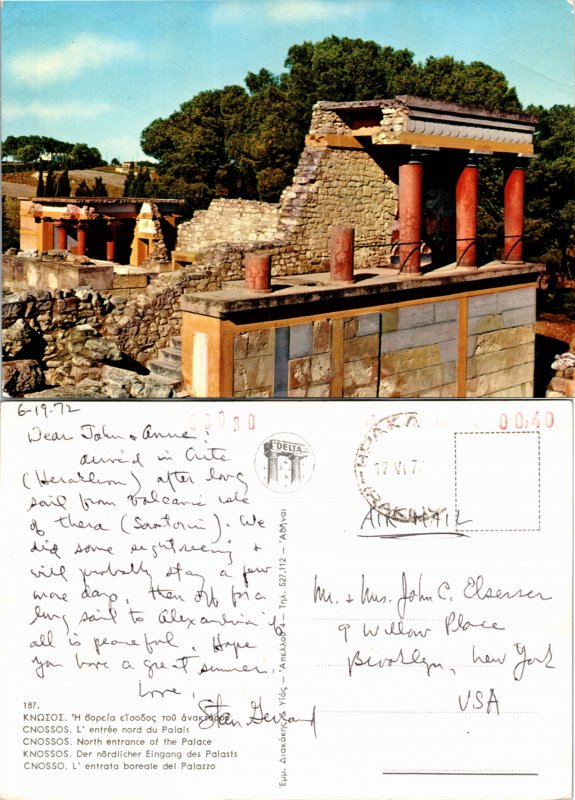 6-19-72
Dear John & Anne:
arrived in Crete
(Heraklion) after long
sail from volcanic isle
of Thera (Santorin). We
did some sightseeing &
will probably stay a few
more days, then off for a
long sail to Alexandria if
all is peaceful. Hope
you have a great summer.
Love,
Stan
00.40
DELTA
AIR MAIL
Mr. & Mrs. John C. Elsesser
9 Willow Place
Brooklyn, New York
USA
Ἐμμ. Διακάκης & Υἱός — Ἀπελλοῦ 4 — Τηλ. 527.112 — Ἀθῆναι
187.
ΚΝΩΣΟΣ. Ἡ βορεία εἴσοδος τοῦ ἀνακτόρου
CNOSSOS. L' entrée nord du Palais
CNOSSOS. North entrance of the Palace
KNOSSOS. Der nördlicher Eingang des Palasts
CNOSSO. L' entrata boreale del Palazzo